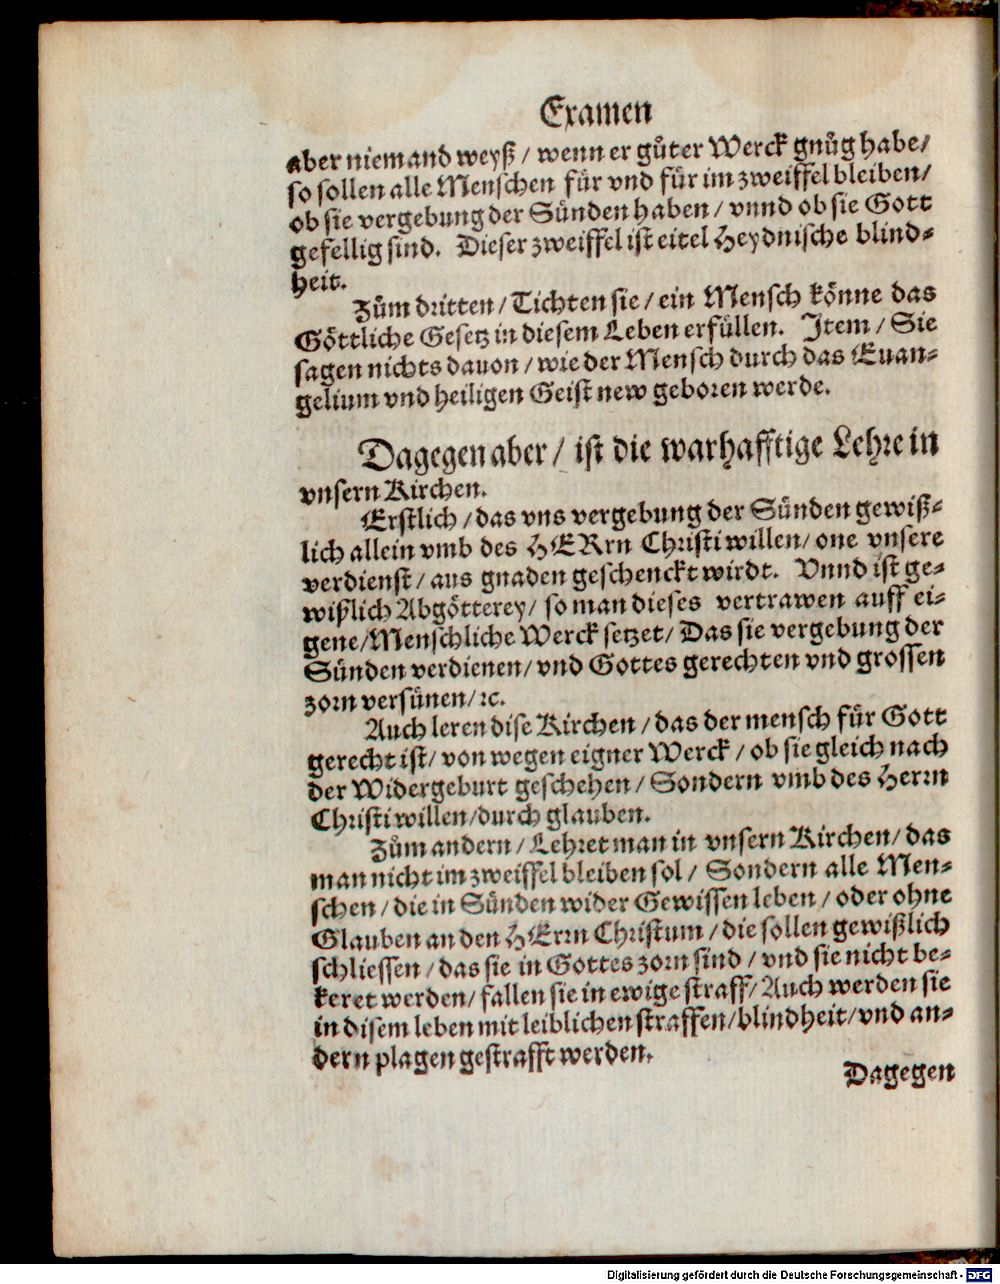 Examen
aber niemand weyß / wenn er gůter Werck gnůg habe /
so sollen alle Menschen für vnd für im zweiffel bleiben /
ob sie vergebung der Sünden haben / vnnd ob sie Gott
gefellig sind. Dieser zweiffel ist eitel Heydnische blind-
heit.
Zům dritten / Tichten sie / ein Mensch könne das
Göttliche Gesetz in diesem Leben erfüllen. Item / Sie
sagen nichts dauon / wie der Mensch durch das Euan-
gelium vnd heiligen Geist new geboren werde.
Dagegen aber / ist die warhafftige Lehre in
vnsern Kirchen.
Erstlich / das vns vergebung der Sünden gewiß-
lich allein vmb des HERrn Christi willen / one vnsere
verdienst / aus gnaden geschenckt wirdt. Vnnd ist ge-
wißlich Abgötterey / so man dieses vertrawen auff ei-
gene / Menschliche Werck setzet / Das sie vergebung der
Sünden verdienen / vnd Gottes gerechten vnd grossen
zorn versünen / ꝛc.
Auch leren dise Kirchen / das der mensch für Gott
gerecht ist / von wegen eigner Werck / ob sie gleich nach
der Widergeburt geschehen / Sondern vmb des Herrn
Christi willen / durch glauben.
Zům andern / Lehret man in vnsern Kirchen / das
man nicht im zweiffel bleiben sol / Sondern alle Men-
schen / die in Sünden wider Gewissen leben / oder ohne
Glauben an den HErrn Christum / die sollen gewißlich
schliessen / das sie in Gottes zorn sind / vnd sie nicht be-
keret werden / fallen sie in ewige straff / Auch werden sie
in disem leben mit leiblichen straffen / blindheit / vnd an-
dern plagen gestrafft werden.
Dagegen
Digitalisierung gefördert durch die Deutsche Forschungsgemeinschaft - DFG